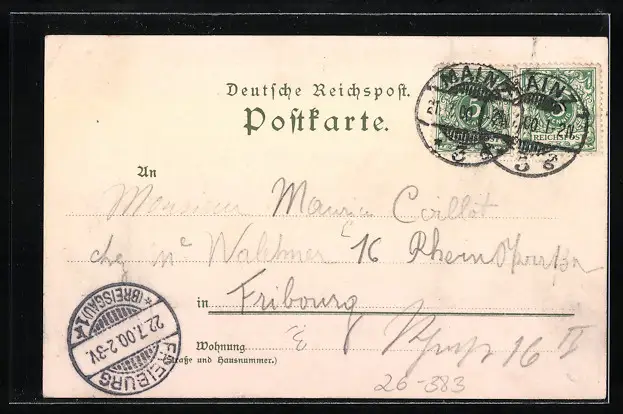 Deutsche Reichspost.
Postkarte.
MAINZ MAINZ
5 5
REICHSPOST
3 3
An
Monsieur Maurice
chez 16 Rhein
in Fribourg
Wohnung
(Straße und Hausnummer.)
16 II
26-383
FREIBURG
22.7.00.2-3V.
(BREISGAU)